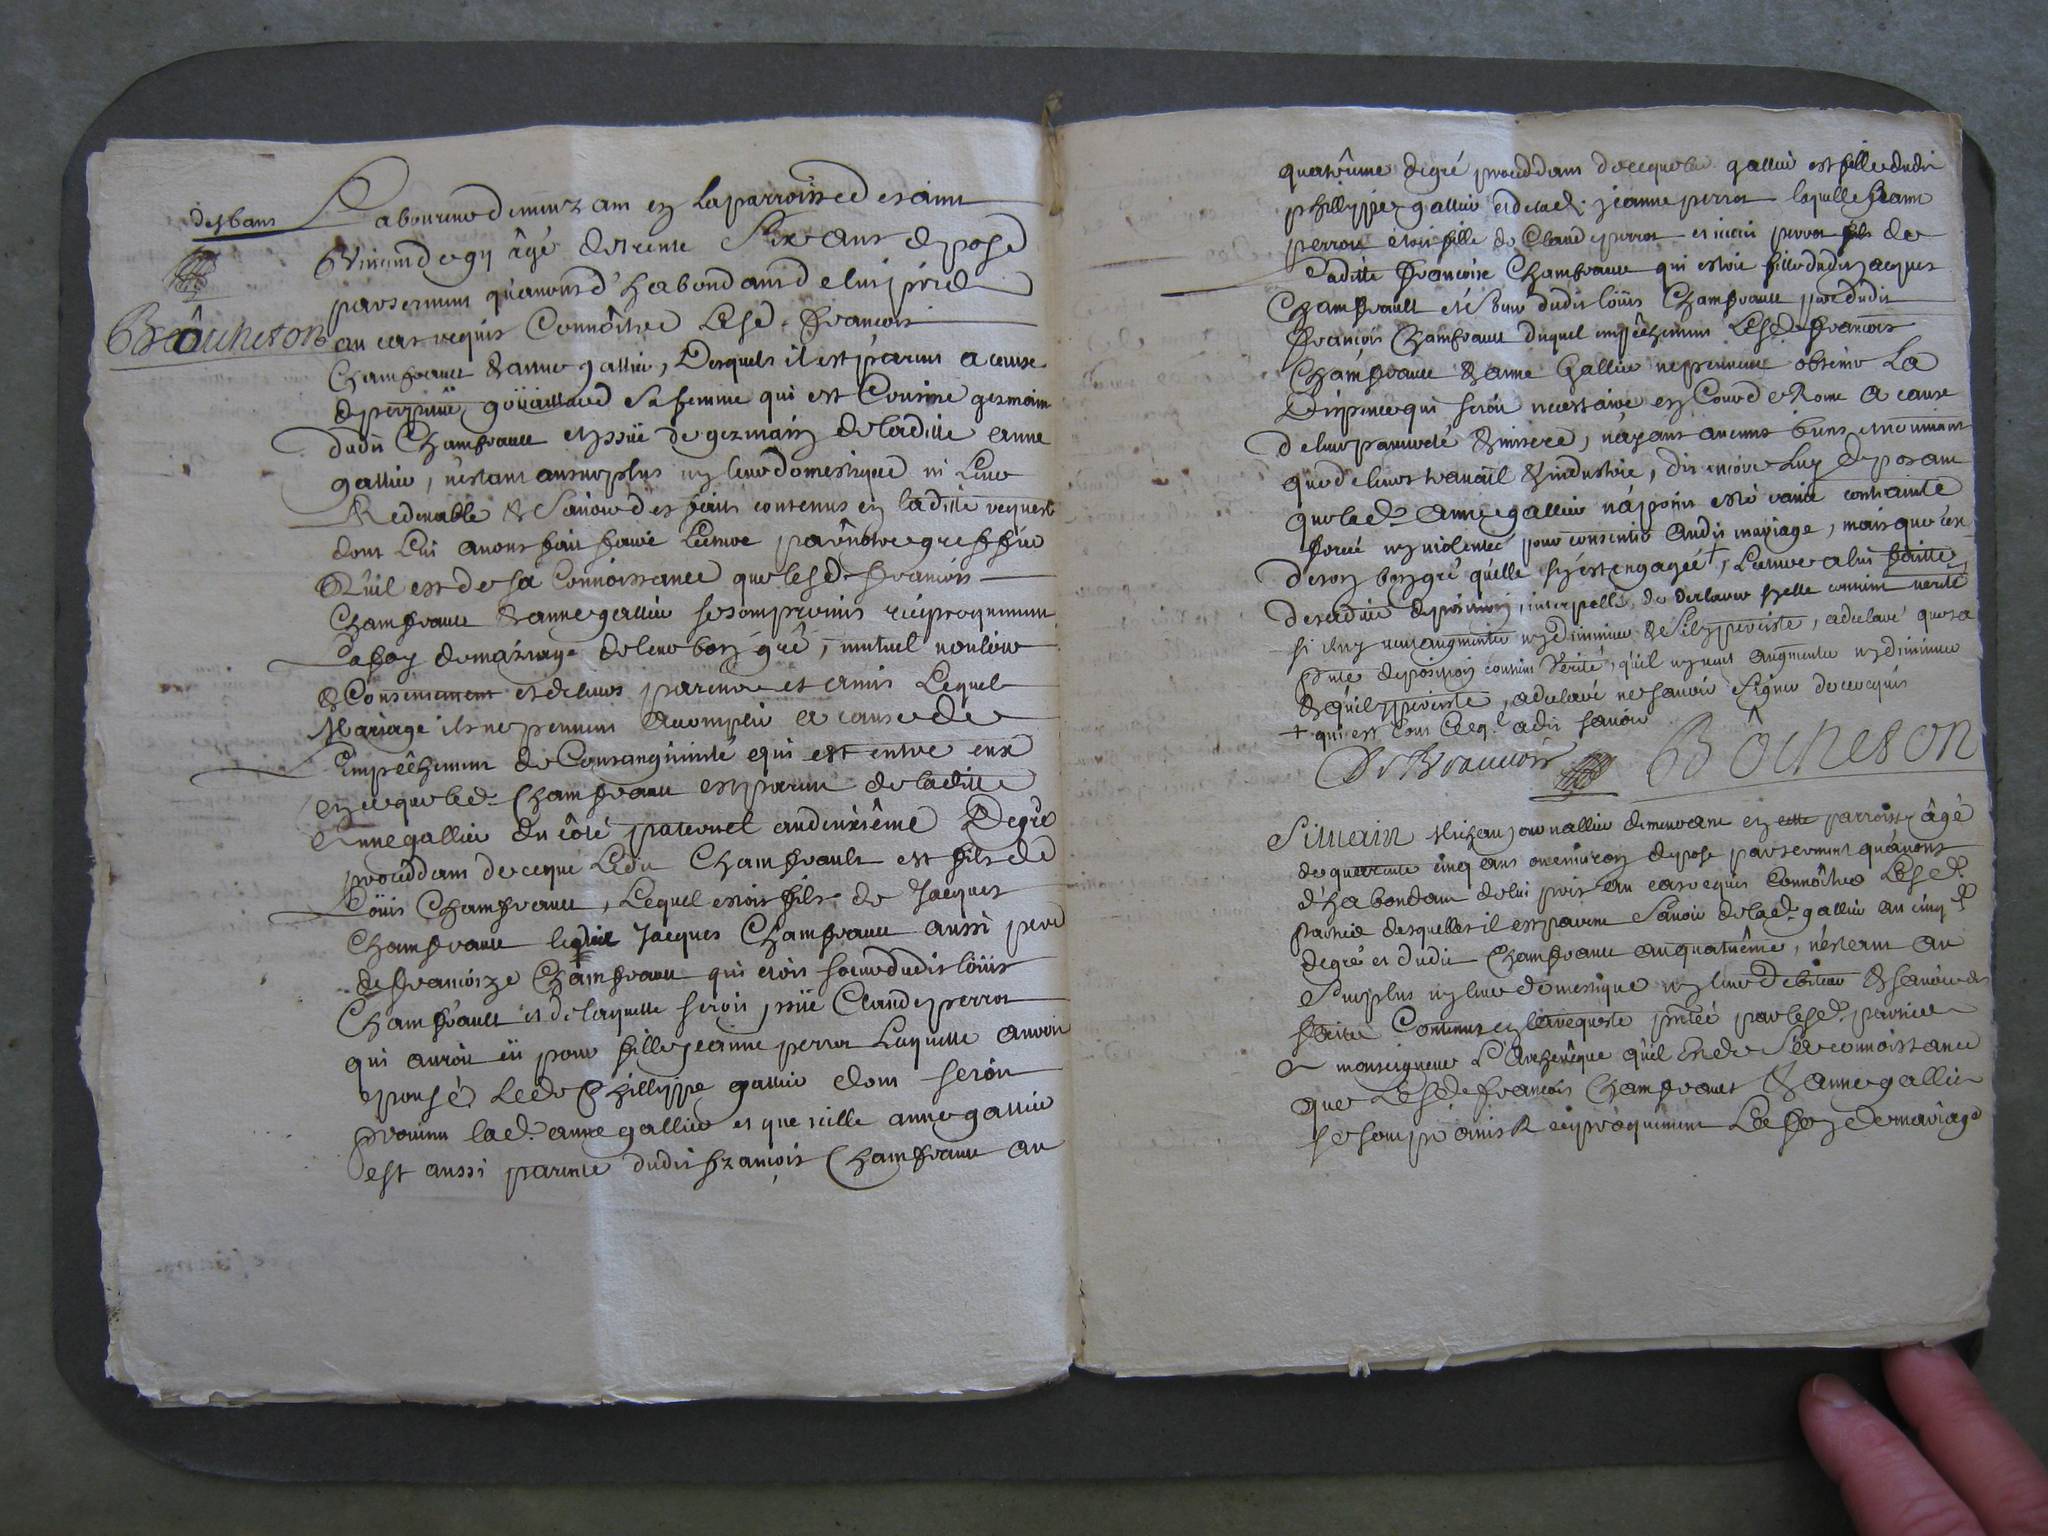 desbans
Bâucheton
Laboureur demeurant en la parroisse de saint
âgé de trente six ans depose
par serment qu'avons d'habondant de lui pris
au cas requis Connoître Lesd. francois
Chamfrault & anne gallier, Desquels il est parent a cause
de sa femme qui est Cousine germaine
dudit Chamfrault et issüe de germain de laditte anne
gallier, n'estant au surplus ny leur domestique ni Leur
Redevable & Sur des faits contenus en laditte requeste
dont Lui avons fait faire Lecture par nôtre greffier
Qu'il est de sa Connoissance que lesd. francois
Chamfrault & anne gallier se sont promis reciproquement
La foy de mariage de leur bon gré, mutuel vouloir
& Consentement et de leurs parens et amis Lequel
Mariage ils ne peuvent acomplir a cause de
L'empêchement de Consanguinité qui est entre eux
en ce que led. Chamfrault est parent de laditte
Anne gallier du côté paternel au deuxième Degré
procedant de ce que Ledit Chamfrault est fils de
Loüis Chamfrault, Lequel estoit fils de Jacques
Chamfrault ledit Jacques Chamfrault aussi pere
de francoize Chamfrault qui etoit soeur dudit loüis
Chamfrault et de laquelle seroit issüe Claude perrot
qui auroit eü pour fille jeanne perrot Laquelle auroit
epousé Led. Phillippe gallier dont seroit
provenu lad. anne gallier et que icelle anne gallier
est aussi parente dudit françois Chamfrault au
quatriême degré procedant de ce que lad. gallier est fille dudit
phillippe gallier et de lad. jeanne perrot laquelle jeanne
perrot étoit fille de Claude perrot et icelui perrot fils de
Laditte francoise Chamfrault qui estoit fille dudit jacques
Chamfrault et soeur dudit loüis Chamfrault pere dudit
francois Chamfrault duquel empêchement Lesd. francois
Chamfrault & anne Gallier ne peuvent obtenir La
Dispence qui seroit necessaire en Cour de Rome a cause
de leur pauvreté & misere, n'ayant aucuns biens et ne vivant
que de leurs travail & industrie, dit encore Luy deposant
que lad. anne gallier n'a point esté ravie contrainte
forcée ny violentée pour consentir audit mariage, mais que c'est
de son bon gré qu'elle s'y est engagée +, Lecture a lui faitte
de sa ditte deposition, interpellé de declarer s'y elle contient verité
si il y veut augmenter ny diminuer & s'il y persiste, a declaré que sa
ditte deposition contient Verité, qu'il n'y veut augmenter ny diminuer
& qu'il y persiste, a declaré ne savoir Signer de ce requis
+ qui est tout ce q. a dit savoir
Bôcheton
Silvain journallier demeurant en cette parroisse âgé
de quarante cinq ans ou environ depose par serment qu'avons
d'habondant de lui pris au cas requis Connoître Lesd.
parties desquelles il est parent Savoir de lad. gallier au cinq.
degré et dudit Chamfrault au quatrième, n'estant au
Surplus ny leur domestique ny leur debiteur & sur des
faits Contenus en la requeste pntée par lesd. parties
a monseigneur L'Archevêque qu'il est de Sa connoissance
que Lesd. francois Chamfrault & anne gallier
se sont promis Reciproquement La foy de mariage